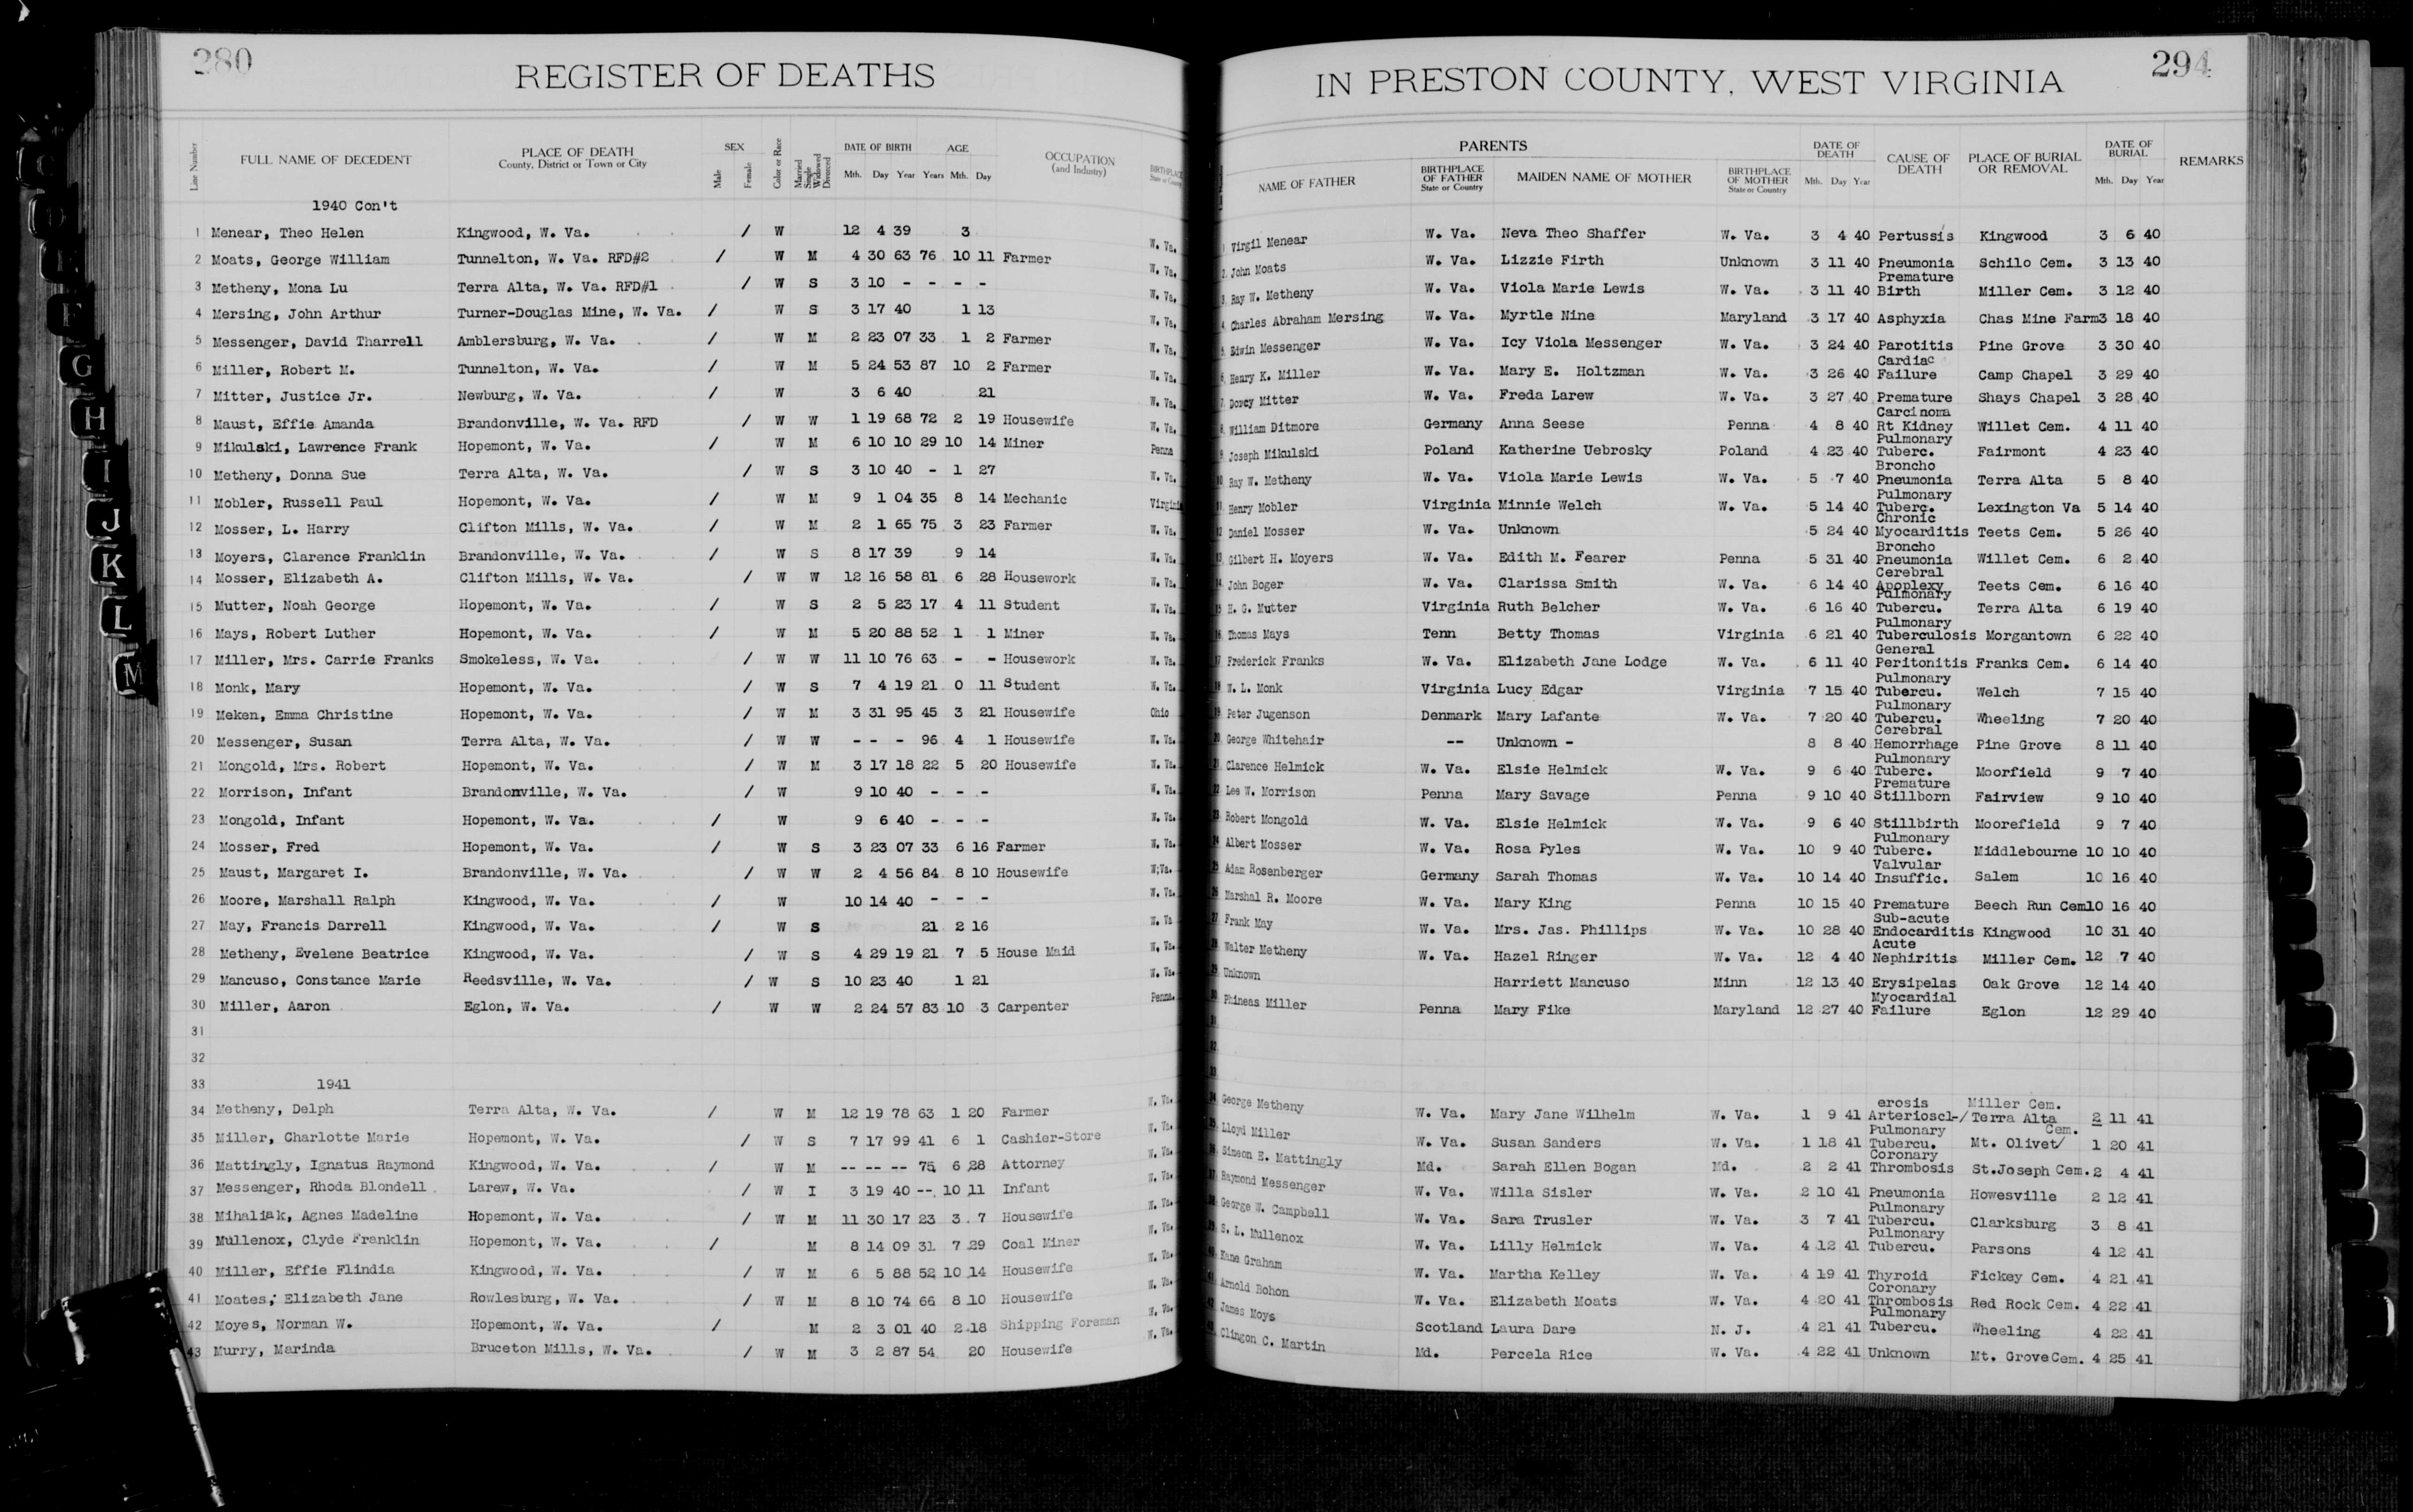 280
REGISTER OF DEATHS
Line Number
FULL NAME OF DECEDENT
PLACE OF DEATH
County, District or Town or City
SEX
Male
Female
Color or Race
Married
Single
Widowed
Divorced
DATE OF BIRTH
Mth. Day Year
AGE
Years Mth. Day
OCCUPATION
(and Industry)
BIRTHPLACE
State or County
1940 Con't
1 Menear, Theo Helen Kingwood, W. Va. / W 12 4 39 3 W. Va.
2 Moats, George William Tunnelton, W. Va. RFD#2 / W M 4 30 63 76 10 11 Farmer W. Va.
3 Metheny, Mona Lu Terra Alta, W. Va. RFD#1 / W S 3 10 - - - - W. Va.
4 Mersing, John Arthur Turner-Douglas Mine, W. Va. / W S 3 17 40 1 13 W. Va.
5 Messenger, David Tharrell Amblersburg, W. Va. / W M 2 23 07 33 1 2 Farmer W. Va.
6 Miller, Robert M. Tunnelton, W. Va. / W M 5 24 53 87 10 2 Farmer W. Va.
7 Mitter, Justice Jr. Newburg, W. Va. / W 3 6 40 21 W. Va.
8 Maust, Effie Amanda Brandonville, W. Va. RFD / W W 1 19 68 72 2 19 Housewife W. Va.
9 Mikulski, Lawrence Frank Hopemont, W. Va. / W M 6 10 10 29 10 14 Miner Penna
10 Metheny, Donna Sue Terra Alta, W. Va. / W S 3 10 40 - 1 27 W. Va.
11 Mobler, Russell Paul Hopemont, W. Va. / W M 9 1 04 35 8 14 Mechanic Virginia
12 Mosser, L. Harry Clifton Mills, W. Va. / W M 2 1 65 75 3 23 Farmer W. Va.
13 Moyers, Clarence Franklin Brandonville, W. Va. / W S 8 17 39 9 14 W. Va.
14 Mosser, Elizabeth A. Clifton Mills, W. Va. / W W 12 16 58 81 6 28 Housework W. Va.
15 Mutter, Noah George Hopemont, W. Va. / W S 2 5 23 17 4 11 Student W. Va.
16 Mays, Robert Luther Hopemont, W. Va. / W M 5 20 88 52 1 1 Miner W. Va.
17 Miller, Mrs. Carrie Franks Smokeless, W. Va. / W W 11 10 76 63 - - Housework W. Va.
18 Monk, Mary Hopemont, W. Va. / W S 7 4 19 21 0 11 Student W. Va.
19 Meken, Emma Christine Hopemont, W. Va. / W M 3 31 95 45 3 21 Housewife Ohio
20 Messenger, Susan Terra Alta, W. Va. / W W - - - 96 4 1 Housewife W. Va.
21 Mongold, Mrs. Robert Hopemont, W. Va. / W M 3 17 18 22 5 20 Housewife W. Va.
22 Morrison, Infant Brandonville, W. Va. / W 9 10 40 - - - W. Va.
23 Mongold, Infant Hopemont, W. Va. / W 9 6 40 - - - W. Va.
24 Mosser, Fred Hopemont, W. Va. / W S 3 23 07 33 6 16 Farmer W. Va.
25 Maust, Margaret I. Brandonville, W. Va. / W W 2 4 56 84 8 10 Housewife W;Va.
26 Moore, Marshall Ralph Kingwood, W. Va. / W 10 14 40 - - - W. Va.
27 May, Francis Darrell Kingwood, W. Va. / W S 21 2 16 W. Va
28 Metheny, Evelene Beatrice Kingwood, W. Va. / W S 4 29 19 21 7 5 House Maid W. Va.
29 Mancuso, Constance Marie Reedsville, W. Va. / W S 10 23 40 1 21 W. Va.
30 Miller, Aaron Eglon, W. Va. / W W 2 24 57 83 10 3 Carpenter Penna.
31
32
33 1941
34 Metheny, Delph Terra Alta, W. Va. / W M 12 19 78 63 1 20 Farmer W. Va.
35 Miller, Charlotte Marie Hopemont, W. Va. / W S 7 17 99 41 6 1 Cashier-Store W. Va.
36 Mattingly, Ignatus Raymond Kingwood, W. Va. / W M -- -- -- 75 6 28 Attorney W. Va.
37 Messenger, Rhoda Blondell Larew, W. Va. / W I 3 19 40 -- 10 11 Infant W. Va.
38 Mihaliak, Agnes Madeline Hopemont, W. Va. / W M 11 30 17 23 3 7 Housewife W. Va.
39 Mullenox, Clyde Franklin Hopemont, W. Va. / M 8 14 09 31 7 29 Coal Miner W. Va.
40 Miller, Effie Flindia Kingwood, W. Va. / W M 6 5 88 52 10 14 Housewife W. Va.
41 Moates, Elizabeth Jane Rowlesburg, W. Va. / W M 8 10 74 66 8 10 Housewife W. Va.
42 Moyes, Norman W. Hopemont, W. Va. / M 2 3 01 40 2 18 Shipping Foreman W. Va.
43 Murry, Marinda Bruceton Mills, W. Va. / W M 3 2 87 54 20 Housewife W. Va.
294
IN PRESTON COUNTY, WEST VIRGINIA
PARENTS
NAME OF FATHER
BIRTHPLACE
OF FATHER
State or Country
MAIDEN NAME OF MOTHER
BIRTHPLACE
OF MOTHER
State or Country
DATE OF
DEATH
Mth. Day Year
CAUSE OF
DEATH
PLACE OF BURIAL
OR REMOVAL
DATE OF
BURIAL
Mth. Day Year
REMARKS
1 Virgil Menear W. Va. Neva Theo Shaffer W. Va. 3 4 40 Pertussis Kingwood 3 6 40
2 John Moats W. Va. Lizzie Firth Unknown 3 11 40 Pneumonia Schilo Cem. 3 13 40
Premature
3 Ray W. Metheny W. Va. Viola Marie Lewis W. Va. 3 11 40 Birth Miller Cem. 3 12 40
4 Charles Abraham Mersing W. Va. Myrtle Nine Maryland 3 17 40 Asphyxia Chas Mine Farm 3 18 40
5 Edwin Messenger W. Va. Icy Viola Messenger W. Va. 3 24 40 Parotitis Pine Grove 3 30 40
Cardiac
6 Henry K. Miller W. Va. Mary E. Holtzman W. Va. 3 26 40 Failure Camp Chapel 3 29 40
7 Dorcy Mitter W. Va. Freda Larew W. Va. 3 27 40 Premature Shays Chapel 3 28 40
Carcinoma
8 William Ditmore Germany Anna Seese Penna 4 8 40 Rt Kidney Willet Cem. 4 11 40
Pulmonary
9 Joseph Mikulski Poland Katherine Uebrosky Poland 4 23 40 Tuberc. Fairmont 4 23 40
Broncho
10 Ray W. Metheny W. Va. Viola Marie Lewis W. Va. 5 7 40 Pneumonia Terra Alta 5 8 40
Pulmonary
11 Henry Mobler Virginia Minnie Welch W. Va. 5 14 40 Tuberc. Lexington Va 5 14 40
Chronic
12 Daniel Mosser W. Va. Unknown 5 24 40 Myocarditis Teets Cem. 5 26 40
Broncho
13 Gilbert H. Moyers W. Va. Edith M. Fearer Penna 5 31 40 Pneumonia Willet Cem. 6 2 40
Cerebral
14 John Boger W. Va. Clarissa Smith W. Va. 6 14 40 Apoplexy Teets Cem. 6 16 40
Pulmonary
15 H. G. Mutter Virginia Ruth Belcher W. Va. 6 16 40 Tubercu. Terra Alta 6 19 40
Pulmonary
16 Thomas Mays Tenn Betty Thomas Virginia 6 21 40 Tuberculosis Morgantown 6 22 40
General
17 Frederick Franks W. Va. Elizabeth Jane Lodge W. Va. 6 11 40 Peritonitis Franks Cem. 6 14 40
Pulmonary
18 W. L. Monk Virginia Lucy Edgar Virginia 7 15 40 Tubercu. Welch 7 15 40
Pulmonary
19 Peter Jugenson Denmark Mary Lafante W. Va. 7 20 40 Tubercu. Wheeling 7 20 40
Cerebral
20 George Whitehair -- Unknown - 8 8 40 Hemorrhage Pine Grove 8 11 40
Pulmonary
21 Clarence Helmick W. Va. Elsie Helmick W. Va. 9 6 40 Tuberc. Moorfield 9 7 40
Premature
22 Lee W. Morrison Penna Mary Savage Penna 9 10 40 Stillborn Fairview 9 10 40
23 Robert Mongold W. Va. Elsie Helmick W. Va. 9 6 40 Stillbirth Moorefield 9 7 40
Pulmonary
24 Albert Mosser W. Va. Rosa Pyles W. Va. 10 9 40 Tuberc. Middlebourne 10 10 40
Valvular
25 Adam Rosenberger Germany Sarah Thomas W. Va. 10 14 40 Insuffic. Salem 10 16 40
26 Marshal R. Moore W. Va. Mary King Penna 10 15 40 Premature Beech Run Cem 10 16 40
Sub-acute
27 Frank May W. Va. Mrs. Jas. Phillips W. Va. 10 28 40 Endocarditis Kingwood 10 31 40
Acute
28 Walter Metheny W. Va. Hazel Ringer W. Va. 12 4 40 Nephiritis Miller Cem. 12 7 40
29 Unknown Harriett Mancuso Minn 12 13 40 Erysipelas Oak Grove 12 14 40
Myocardial
30 Phineas Miller Penna Mary Fike Maryland 12 27 40 Failure Eglon 12 29 40
31
32
33
erosis Miller Cem.
34 George Metheny W. Va. Mary Jane Wilhelm W. Va. 1 9 41 Arterioscl-/ Terra Alta 2 11 41
Pulmonary Cem.
35 Lloyd Miller W. Va. Susan Sanders W. Va. 1 18 41 Tubercu. Mt. Olivet/ 1 20 41
Coronary
36 Simeon E. Mattingly Md. Sarah Ellen Bogan Md. 2 2 41 Thrombosis St.Joseph Cem. 2 4 41
37 Raymond Messenger W. Va. Willa Sisler W. Va. 2 10 41 Pneumonia Howesville 2 12 41
Pulmonary
38 George W. Campbell W. Va. Sara Trusler W. Va. 3 7 41 Tubercu. Clarksburg 3 8 41
Pulmonary
39 S. L. Mullenox W. Va. Lilly Helmick W. Va. 4 12 41 Tubercu. Parsons 4 12 41
40 Kane Graham W. Va. Martha Kelley W. Va. 4 19 41 Thyroid Fickey Cem. 4 21 41
Coronary
41 Arnold Bohon W. Va. Elizabeth Moats W. Va. 4 20 41 Thrombosis Red Rock Cem. 4 22 41
Pulmonary
42 James Moys Scotland Laura Dare N. J. 4 21 41 Tubercu. Wheeling 4 22 41
43 Clingon C. Martin Md. Percela Rice W. Va. 4 22 41 Unknown Mt. Grove Cem. 4 25 41
G
H
I
J
K
L
M